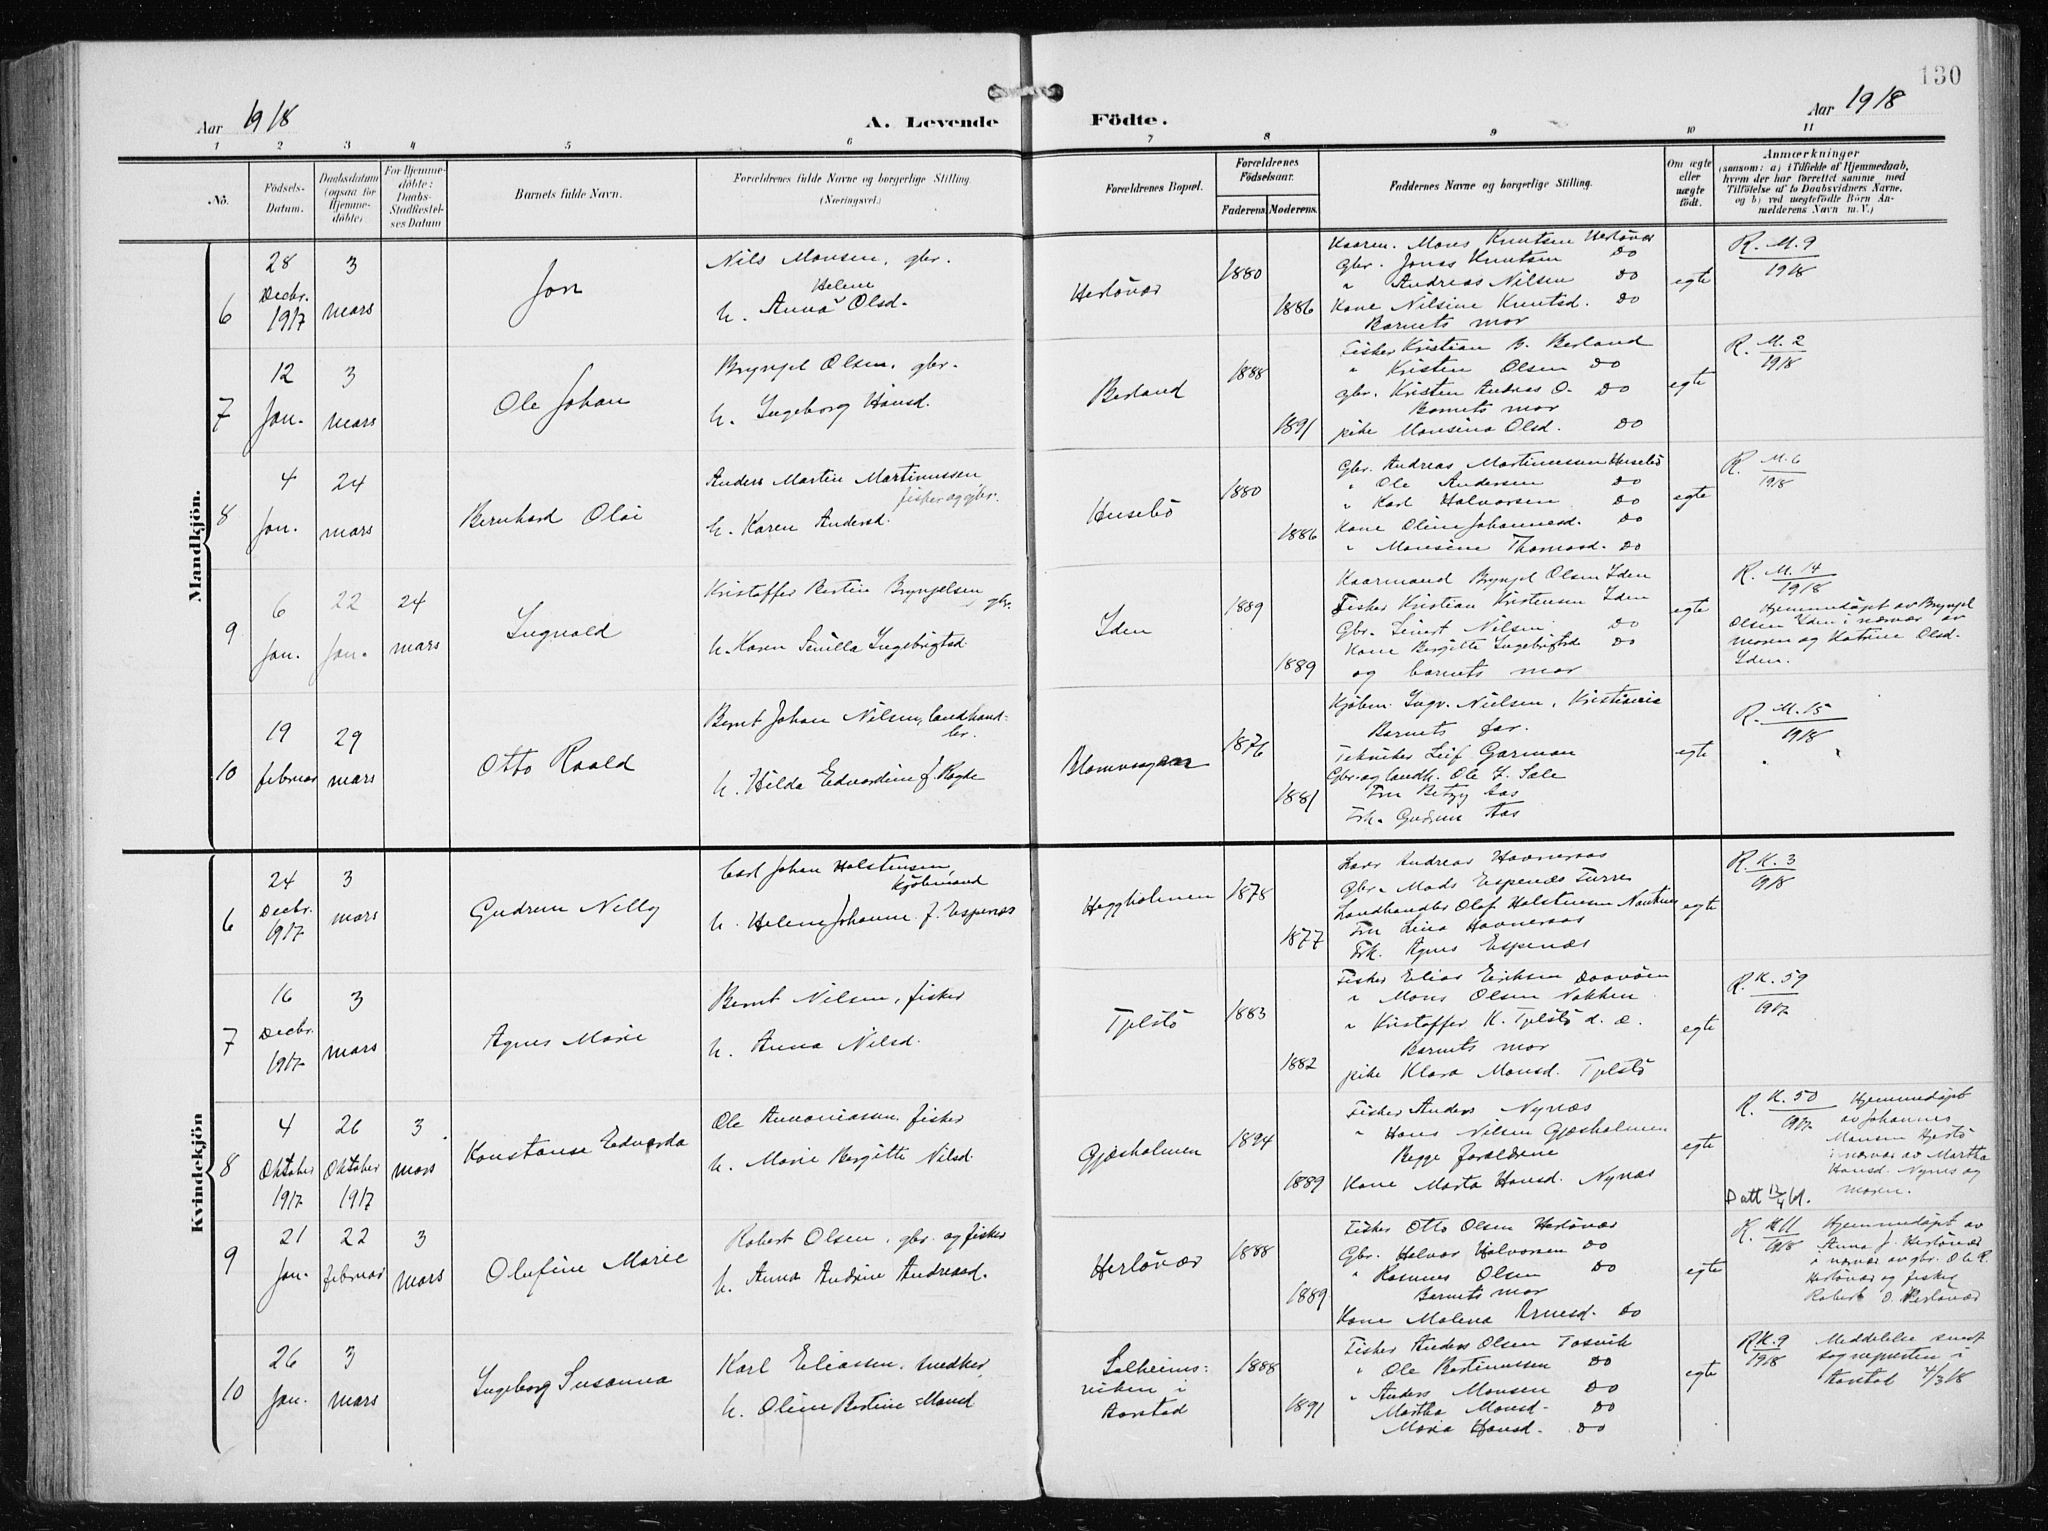 130
Aar 1918
A. Levende Födte.
Aar 1918
1 2 3 4 5 6 7 8 9 10 11
No.
Födsels-Datum.
Daabsdatum (ogsaa for Hjemmedöbte)
For Hjemmedöbte: Daabs-Stadfæstelses Datum
Barnets fulde Navn.
Forældrenes fulde Navne og borgerlige Stilling.
(Næringsvei.)
Forældrenes Bopæl.
Forældrenes Födselsaar.
Faderens.
Moderens.
Faddernes Navne og borgerlige Stilling.
Om ægte eller uægte födt.
Anmærkninger
(saasom: a) i Tilfælde af Hjemmedaab, hvem der har forrettet samme med Tilföielse af to Daabsvidners Navne, og b) ved uægtefödte Börn Anmelderens Navn m.V.)
Mandkjön.
6
28 Decbr. 1917
3 mars
Jon
Nils Monsen, gbr.
h. Anna Helene Olsd.
Herlövær
1880
1886
Kaarem. Mons Knutsen Herlövær
Gbr. Jonas Knutsen Do
" Andreas Nilsen Do
Kone Nilsine Knutsd. Do
Barnets mor
egte
R. M. 9
1918
7
12 Jan.
3 mars
Ole Johan
Bryngel Olsen, gbr.
h. Ingeborg Hansd.
Berland
1888
1891
Fisker Kristian B. Berland
" Kristen Olsen Do
gbr. Kristen Andreas O. Do
Barnets mor
pike Monsina Olsd. Do
egte
R. M. 2
1918
8
4 Jan.
24 mars
Bernhard Olai
Anders Martin Martinussen
fisker og gbr.
h. Karen Andersd.
Husebö
1880
1886
Gbr. Andreas Martinussen Husebö
" Ole Andersen Do
" Karl Halvorsen Do
Kone Oline Johannesd. Do
" Monsine Thomasd. Do
egte
R. M. 6
1918
9
6 Jan.
22 Jan.
24 mars
Ingvald
Kristoffer Bertin Bryngelsen gbr.
h. Karen Sirilla Ingebrigtsd
Yden
1889
1889
Kaarmand Bryngel Olsen Yden
Fisker Kristian Kristensen Yden
Gbr. Sivert Nilsen Do
Kone Bergitte Ingebrigtsd Do
og barnets mor
egte
R. M. 14
1918
Hjemmedöpt av Bryngel
Olsen Yden i nærvær av
moren og Katrine Olsd.
Yden.
10
19 februar
29 mars
Otto Roald
Bernt Johan Nilsen, landhandler.
h. Hilda Edvardine f. Rogde
Blomvaagen
1876
1881
Kjöbm. Ingv. Nielsen, Kristiania
Barnets far.
Tekniker Leif Garman
Gbr. og landh. Ole L. Sæle
Fru Betzy Aas
Frk. Gudrun Aas
egte
R. M. 15
1918
Kvindekjön
6
24 Decbr. 1917
3 mars
Gudrun Nelly
Carl Johan Holstensen,
kjöbmand
h. Helene Johanne f. Espenæs
Heggholmen
1878
1877
Andreas Havneraas
Gbr. Mads Espenæs Turre
Landhandler Olaf Holstensen Nautnes
Fru Lina Havneraas
Frk. Agnes Espenæs
egte
R. K. 3
1918
7
16 Decbr. 1917
3 mars
Agnes Marie
Bernt Nilsen, fisker
h. Anna Nilsd.
Tjelstö
1883
1882
Fisker Elias Eriksen Daavöen
" Mons Olsen Nakken
" Kristoffer K. Tjelstö d. e.
Barnets mor
pike Klara Monsd. Tjelstö
egte
R. K. 59
1917
8
4 Oktober 1917
26 Oktober 1917
3 mars
Konstanse Edvarda
Ole Annaniassen fisker
h. Marie Bergitte Nilsd
Gjæsholmen
1894
1889
Fisker Anders Nynæs
" Hans Nilsen Gjæsholmen
Begge forældrene
Kone Marta Hansd. Nynæs
egte
R. K. 50
1917
Hjemmedöpt
av Johannes
Monsen Hjertö
i nærvær av Martha
Hansd. Nynes og
moren.
9
21 Jan.
22 februar
3 mars
Olufine Marie
Robert Olsen, gbr. og fisker
h. Anna Andrine Andreasd.
Herlövær
1888
1889
Fisker Otto Olsen Herlövær
Gbr. Halvar Halvorsen Do
" Rasmus Olsen Do
Barnets mor
Kone Malena Arnesd. Do
egte
R. K 11
1918
Hjemmedöpt av
Anna J. Herlövær
i nærvær av gbr. Ole R.
Herlövær og fisker
Robert O. Herlövær
10
26 Jan.
3 mars
Ingeborg Susanna
Karl Eliassen, snedker
h. Oline Bertine Monsd
Solheimsviken i Aarstad
1888
1891
Fisker Anders Olsen Toska
" Ole Bertinussen Do
" Anders Monsen Do
Martha Monsd. Do
Maria Hansd. Do
egte
R K. 9
1918
Meddelelse sendt
sognepresten i
Aarstad 4/3 18